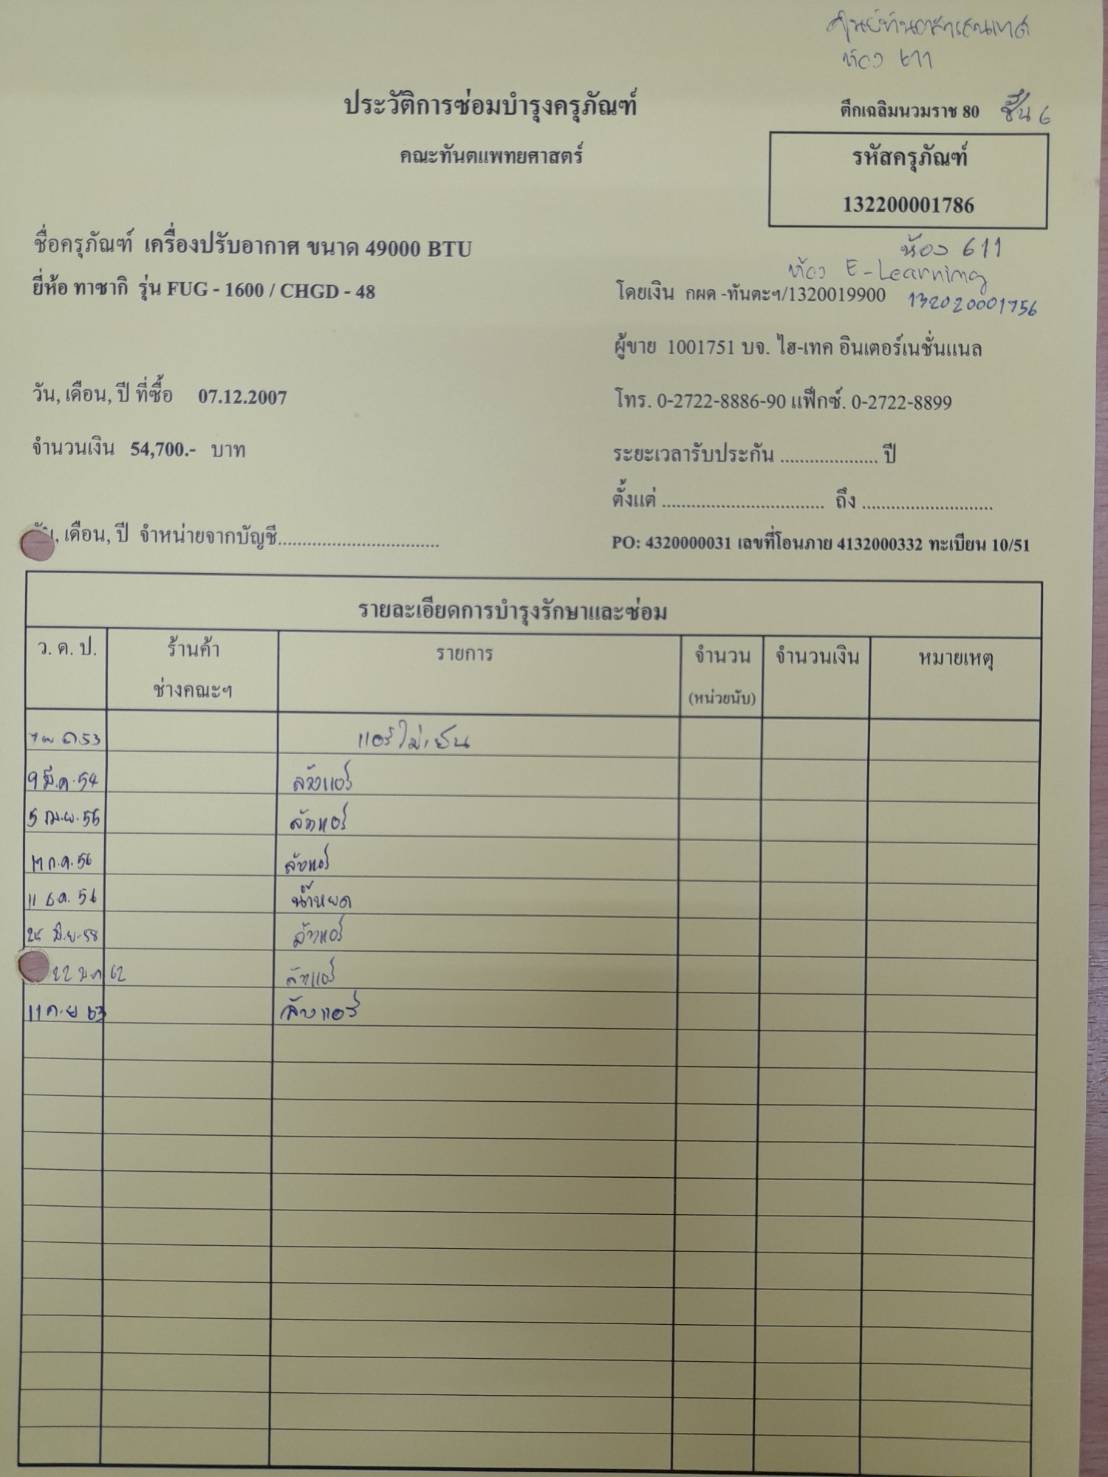 ศูนย์ทันตสารสนเทศ
ห้อง ๒๑๑
ประวัติการซ่อมบำรุงครุภัณฑ์
ตึกเฉลิมนวมราช 80 ชั้น 6
คณะทันตแพทยศาสตร์
รหัสครุภัณฑ์
132200001786
ชื่อครุภัณฑ์ เครื่องปรับอากาศ ขนาด 49000 BTU
ห้อง 611
ห้อง E-Learning
ยี่ห้อ ทาซากิ รุ่น FUG - 1600 / CHGD - 48
โดยเงิน กผด -ทันตะฯ/1320019900
132020001756
ผู้ขาย 1001751 บจ. ไฮ-เทค อินเตอร์เนชั่นแนล
วัน, เดือน, ปี ที่ซื้อ 07.12.2007
โทร. 0-2722-8886-90 แฟ็กซ์. 0-2722-8899
จำนวนเงิน 54,700.- บาท
ระยะเวลารับประกัน ................... ปี
ตั้งแต่ ................................ ถึง ..........................
วัน, เดือน, ปี จำหน่ายจากบัญชี................................
PO: 4320000031 เลขที่โอนภาย 4132000332 ทะเบียน 10/51
รายละเอียดการบำรุงรักษาและซ่อม
ว. ด. ป. ร้านค้า รายการ จำนวน จำนวนเงิน หมายเหตุ
ช่างคณะฯ (หน่วยนับ)
53 แอร์ไม่เย็น
9 มี.ค. 54 ล้างแอร์
5 เม.ย. 55 ล้างแอร์
ก.ค. 56 ล้างแอร์
11 ธ.ค. 56 น้ำหยด
25 มิ.ย. 58 ล้างแอร์
22 ม.ค 62 ล้างแอร์
11 ก.ย 63 ล้างแอร์